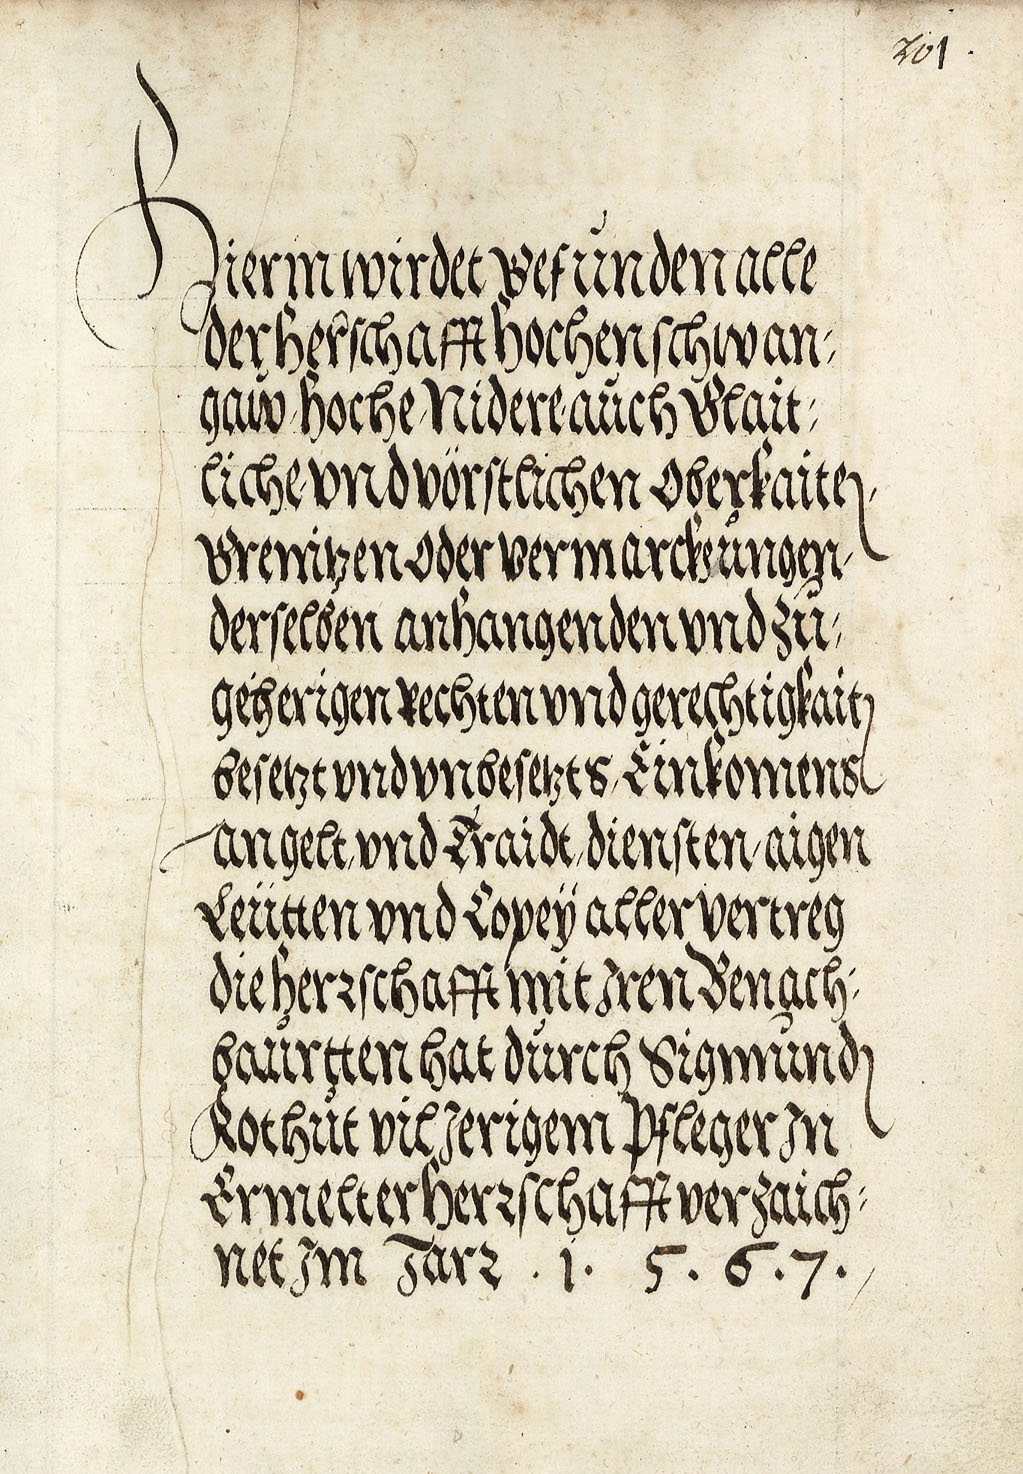 201.
Hierin wirdet Befunden alle
der Herschafft Hochenschwan-
gaw Hoche Nidere auch Glait-
liche vnd vörstlichen Oberkaiten,
Grenitzen Oder vermarckhungen
derselben anhangenden vnd Zu-
geherigen Rechten vnd gerechtigkaiten
besetzt vnd vnbesetzts, Einkomens
an gelt, vnd Traidt, diensten, aigen
Leütten vnd Copeÿ aller vertreg
die Herrschafft mit Iren Benach-
baurtten hat durch Sigmunden
Kothut vil Jerigem Pfleger In
Ermelter Herrschafft verzaich-
net Im Jarr . 1. 5. 6. 7.